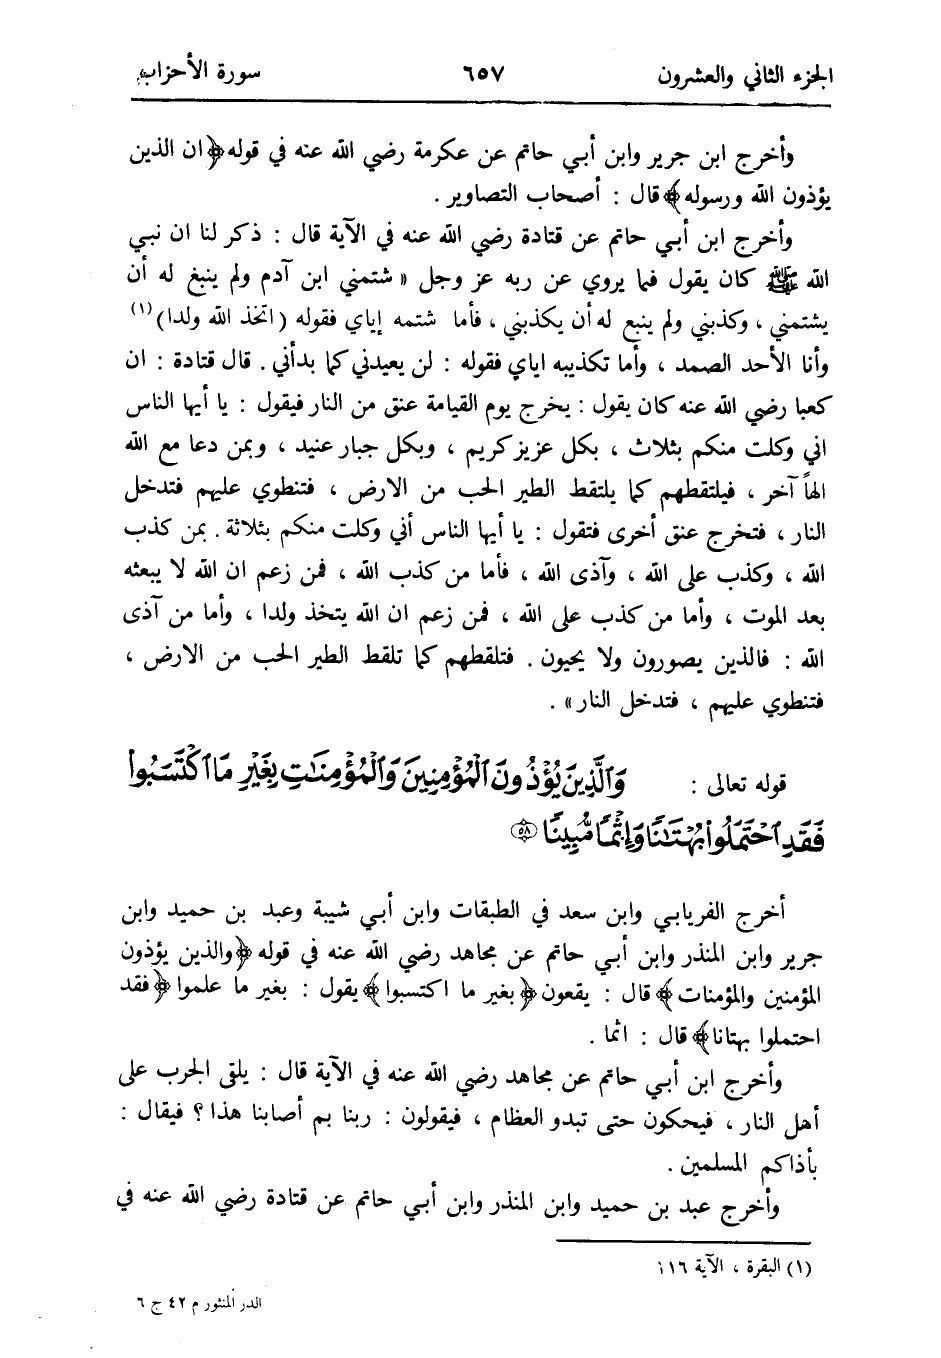 الجزء الثاني والعشرون ٦٥٧ سورة الأحزاب
وأخرج ابن جرير وابن أبي حاتم عن عكرمة رضي الله عنه في قوله ﴿ان الذين
يؤذون الله ورسوله﴾ قال : أصحاب التصاوير .
وأخرج ابن أبي حاتم عن قتادة رضي الله عنه في الآية قال : ذكر لنا ان نبي
الله ﷺ كان يقول فيما يروي عن ربه عز وجل « شتمني ابن آدم ولم ينبغ له أن
يشتمني ، وكذبني ولم ينبع له أن يكذبني ، فأما شتمه إياي فقوله (اتخذ الله ولدا)(١)
وأنا الأحد الصمد ، وأما تكذيبه اياي فقوله : لن يعيدني كما بدأني . قال قتادة : ان
كعبا رضي الله عنه كان يقول : يخرج يوم القيامة عنق من النار فيقول : يا أيها الناس
اني وكلت منكم بثلاث ، بكل عزيز كريم ، وبكل جبار عنيد ، وبمن دعا مع الله
الهاً آخر ، فيلتقطهم كما يلتقط الطير الحب من الارض ، فتنطوي عليهم فتدخل
النار ، فتخرج عنق أخرى فتقول : يا أيها الناس أني وكلت منكم بثلاثة . بمن كذب
الله ، وكذب على الله ، وآذى الله ، فأما من كذب الله ، فمن زعم ان الله لا يبعثه
بعد الموت ، وأما من كذب على الله ، فمن زعم ان الله يتخذ ولدا ، وأما من آذى
الله : فالذين يصورون ولا يحيون . فتلقطهم كما تلقط الطير الحب من الارض ،
فتنطوي عليهم ، فتدخل النار» .
قوله تعالى : وَالَّذِينَ يُؤْذُونَ الْمُؤْمِنِينَ وَالْمُؤْمِنَاتِ بِغَيْرِ مَا اكْتَسَبُوا
فَقَدِ احْتَمَلُوا بُهْتَانًا وَإِثْمًا مُّبِينًا ٥٨
أخرج الفريابي وابن سعد في الطبقات وابن أبي شيبة وعبد بن حميد وابن
جرير وابن المنذر وابن أبي حاتم عن مجاهد رضي الله عنه في قوله ﴿والذين يؤذون
المؤمنين والمؤمنات﴾ قال : يقعون ﴿بغير ما اكتسبوا﴾ يقول : بغير ما علموا ﴿فقد
احتملوا بهتانا﴾ قال : اثما .
وأخرج ابن أبي حاتم عن مجاهد رضي الله عنه في الآية قال : يلقى الجرب على
أهل النار ، فيحكون حتى تبدو العظام ، فيقولون : ربنا بم أصابنا هذا ؟ فيقال :
بأذاكم المسلمين .
وأخرج عبد بن حميد وابن المنذر وابن أبي حاتم عن قتادة رضي الله عنه في
(١) البقرة ، الآية ١١٦
الدر المنثور م ٤٢ ج ٦